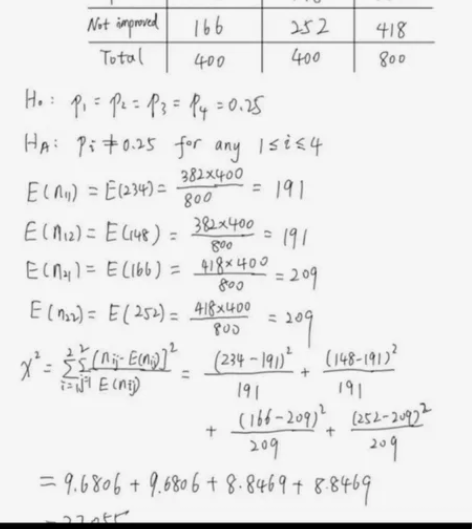 Not improved 166 252 418
Total 400 400 800
H₀: p₁ = p₂ = p₃ = p₄ = 0.25
H_A: pᵢ ≠ 0.25 for any 1 ≤ i ≤ 4
E(n₁₁) = E(234) = 382×400 / 800 = 191
E(n₁₂) = E(148) = 382×400 / 800 = 191
E(n₂₁) = E(166) = 418×400 / 800 = 209
E(n₂₂) = E(252) = 418×400 / 800 = 209
χ² = Σ²ᵢ₌₁ Σ²ⱼ₌₁ [nᵢⱼ - E(nᵢⱼ)]² / E(nᵢⱼ) = (234-191)² / 191 + (148-191)² / 191
+ (166-209)² / 209 + (252-209)² / 209
= 9.6806 + 9.6806 + 8.8469 + 8.8469